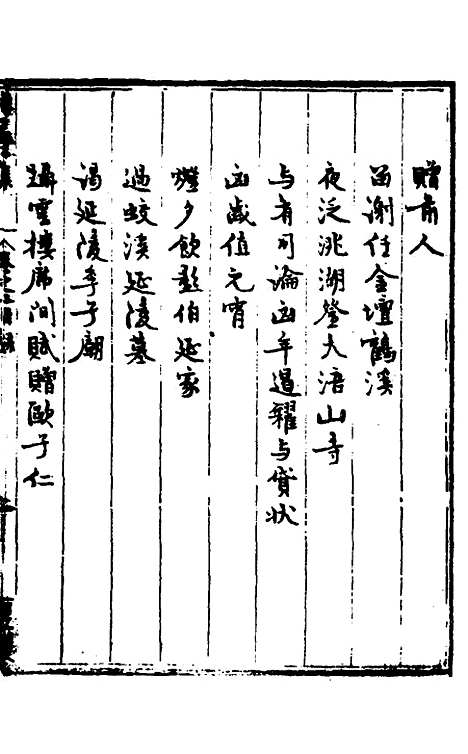 贈前人
留謝任金壇鶴溪
夜泛洮湖登大浯山寺
与有司論凶年遏糴与貸状
凶歲值元宵
燈夕飲彭伯延家
過蛟溪延陵墓
謁延陵季子廟
躡雲樓席间賦贈歐子仁